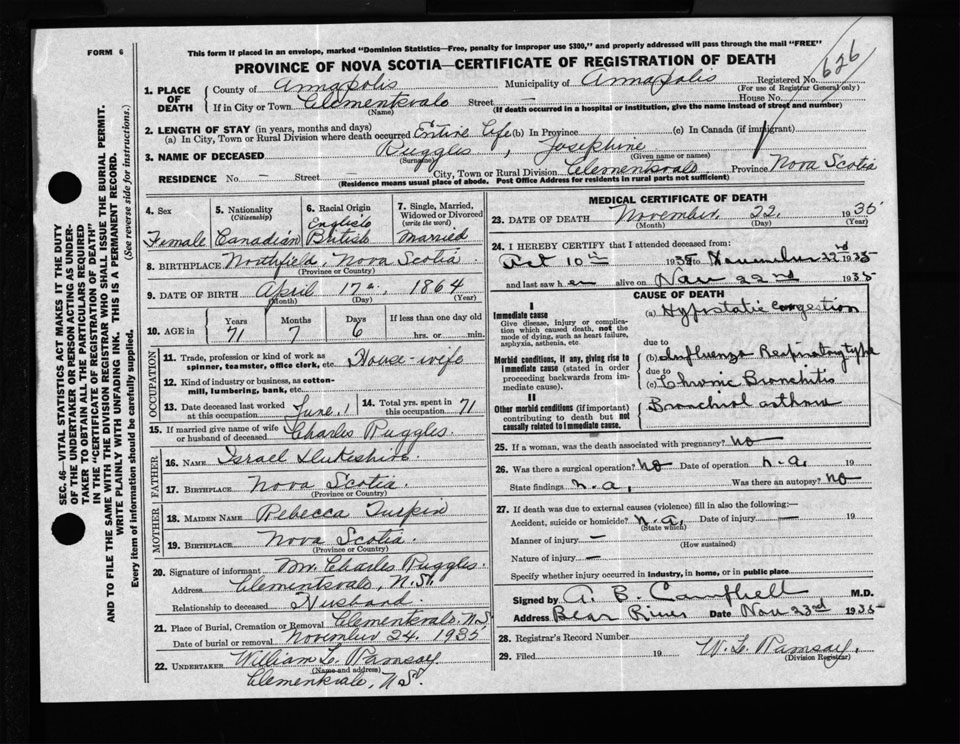 FORM 6
This form if placed in an envelope, marked "Dominion Statistics—Free, penalty for improper use $300," and properly addressed will pass through the mail "FREE"
PROVINCE OF NOVA SCOTIA—CERTIFICATE OF REGISTRATION OF DEATH
626
1. PLACE OF DEATH County of Annapolis Municipality of Annapolis Registered No.
(For use of Registrar General only)
If in City or Town Clementsvale Street — House No.
(Name) (If death occurred in a hospital or institution, give the name instead of street and number)
2. LENGTH OF STAY (in years, months and days)
(a) In City, Town or Rural Division where death occurred Entire Life (b) In Province (c) In Canada (if immigrant)
3. NAME OF DECEASED Ruggles, Josephine
(Surname) (Given name or names)
RESIDENCE No. — Street — City, Town or Rural Division Clementsvale Province Nova Scotia
(Residence means usual place of abode. Post Office Address for residents in rural parts not sufficient)
SEC. 46—VITAL STATISTICS ACT MAKES IT THE DUTY OF THE UNDERTAKER OR PERSON ACTING AS UNDERTAKER TO OBTAIN ALL THE PARTICULARS REQUIRED IN THE "CERTIFICATE OF REGISTRATION OF DEATH" AND TO FILE THE SAME WITH THE DIVISION REGISTRAR WHO SHALL ISSUE THE BURIAL PERMIT.
WRITE PLAINLY WITH UNFADING INK. THIS IS A PERMANENT RECORD.
Every item of information should be carefully supplied. (See reverse side for instructions.)
4. Sex Female
5. Nationality (Citizenship) Canadian
6. Racial Origin English British
7. Single, Married, Widowed or Divorced (write the word) Married
8. BIRTHPLACE Northfield, Nova Scotia
(Province or Country)
9. DATE OF BIRTH April 17th, 1864
(Month) (Day) (Year)
10. AGE in Years 71 Months 7 Days 6 If less than one day old hrs. or min.
OCCUPATION
11. Trade, profession or kind of work as spinner, teamster, office clerk, etc. House-wife
12. Kind of industry or business, as cotton-mill, lumbering, bank, etc.
13. Date deceased last worked at this occupation June, 1
14. Total yrs. spent in this occupation 71
15. If married give name of wife or husband of deceased Charles Ruggles.
FATHER
16. NAME Israel Dukeshire
17. BIRTHPLACE Nova Scotia.
(Province or Country)
MOTHER
18. MAIDEN NAME Rebecca Turpin
19. BIRTHPLACE Nova Scotia.
(Province or Country)
20. Signature of informant Mr. Charles Ruggles.
Address Clementsvale, N.S.
Relationship to deceased Husband.
21. Place of Burial, Cremation or Removal Clementsvale, N.S.
Date of burial or removal November 24, 1935
22. UNDERTAKER William L. Ramsay
(Name and address)
Clementsvale, N.S.
MEDICAL CERTIFICATE OF DEATH
23. DATE OF DEATH November 22, 1935
(Month) (Day) (Year)
24. I HEREBY CERTIFY that I attended deceased from:
Oct 10th 1935 to November 22nd 1935
and last saw her alive on Nov 22nd 1935
CAUSE OF DEATH
I
Immediate cause
Give disease, injury or complication which caused death, not the mode of dying, such as heart failure, asphyxia, asthenia, etc.
(a) Hypostatic Congestion
due to
Morbid conditions, if any, giving rise to immediate cause (stated in order proceeding backwards from immediate cause).
(b) Influenza Respiratory type
due to
(c) Chronic Bronchitis
II
Other morbid conditions (if important) contributing to death but not causally related to immediate cause.
Bronchial asthma
25. If a woman, was the death associated with pregnancy? No
26. Was there a surgical operation? No Date of operation n.a. 19
State findings n.a. Was there an autopsy? No
27. If death was due to external causes (violence) fill in also the following:—
Accident, suicide or homicide? n.a. Date of injury — 19
(State which)
Manner of injury —
(How sustained)
Nature of injury —
Specify whether injury occurred in industry, in home, or in public place
Signed by A. B. Campbell M.D.
Address Bear River Date Nov 23rd 1935
28. Registrar's Record Number
29. Filed 19 W. L. Ramsay,
(Division Registrar)